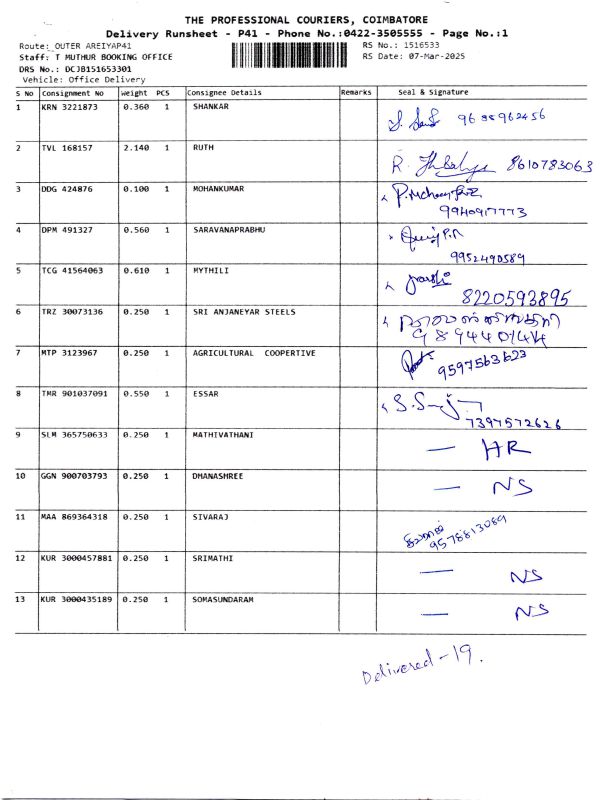 THE PROFESSIONAL COURIERS, COIMBATORE
Delivery Runsheet - P41 - Phone No.:0422-3505555 - Page No.:1
Route: OUTER AREIYAP41 RS No.: 1516533
Staff: T MUTHUR BOOKING OFFICE RS Date: 07-Mar-2025
DRS No.: DCJB151653301
Vehicle: Office Delivery
S No Consignment No Weight PCS Consignee Details Remarks Seal & Signature
1 KRN 3221873 0.360 1 SHANKAR
2 TVL 168157 2.140 1 RUTH R. 8610783063
3 DDG 424876 0.100 1 MOHANKUMAR
9940917773
4 DPM 491327 0.560 1 SARAVANAPRABHU
9952490589
5 TCG 41564063 0.610 1 MYTHILI
8220593895
6 TRZ 30073136 0.250 1 SRI ANJANEYAR STEELS
7 MTP 3123967 0.250 1 AGRICULTURAL COOPERTIVE
9597563623
8 TMR 901037091 0.550 1 ESSAR
7397572626
9 SLM 365750633 0.250 1 MATHIVATHANI — HR
10 GGN 900703793 0.250 1 DHANASHREE — NS
11 MAA 869364318 0.250 1 SIVARAJ
9578813089
12 KUR 3000457881 0.250 1 SRIMATHI — NS
13 KUR 3000435189 0.250 1 SOMASUNDARAM — NS
Delivered - 19.